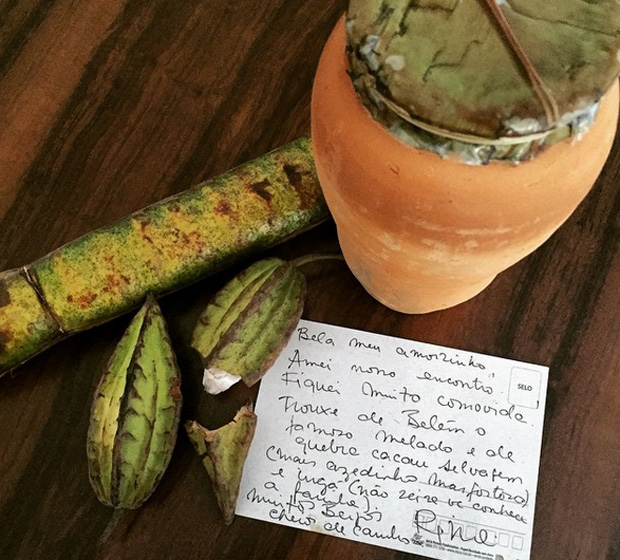 Bela meu amorzinho,
Amei nosso encontro.
Fiquei muito comovida.
Trouxe de Belém o
famoso melado e de
quebra cacau selvagem
(mais azedinho mas gostoso)
e ingá (não sei se vc conhece
a família)
Muitos Beijos
cheio de carinho
SELO